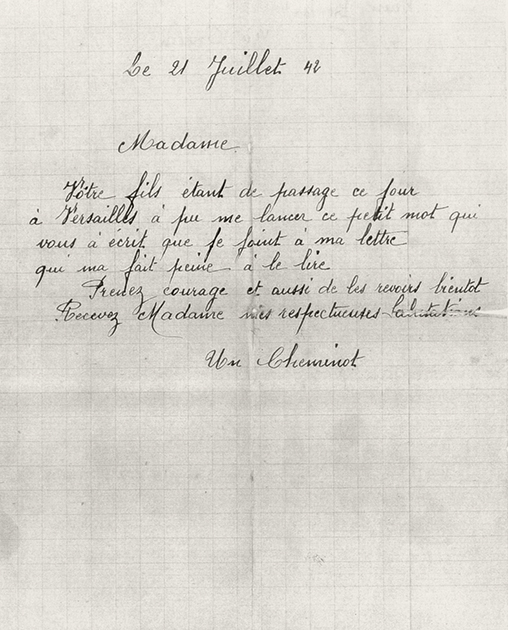 Le 21 Juillet 42
Madame
Vôtre fils étant de passage ce jour
à Versailles à pu me lancer ce petit mot qui
vous à écrit que je joint à ma lettre
qui ma fait peine à le lire
Prenez courage et aussi de les revoirs bientot
Recevez Madame mes respectueuses Salutations
Un Cheminot